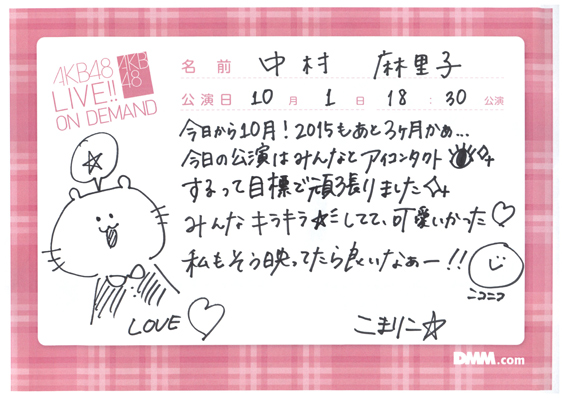 AKB48
LIVE!!
ON DEMAND
AKB
48
名前 中村 麻里子
公演日 10月 1日 18:30 公演
今日から10月!2015もあと3ヶ月かぁ…
今日の公演はみんなとアイコンタクト
するって目標で頑張りました
みんなキラキラ☆ミしてて、可愛いかった♡
私もそう映ってたら良いなぁー!!
ニコニコ
LOVE♡
こまりこ☆
DMM.com